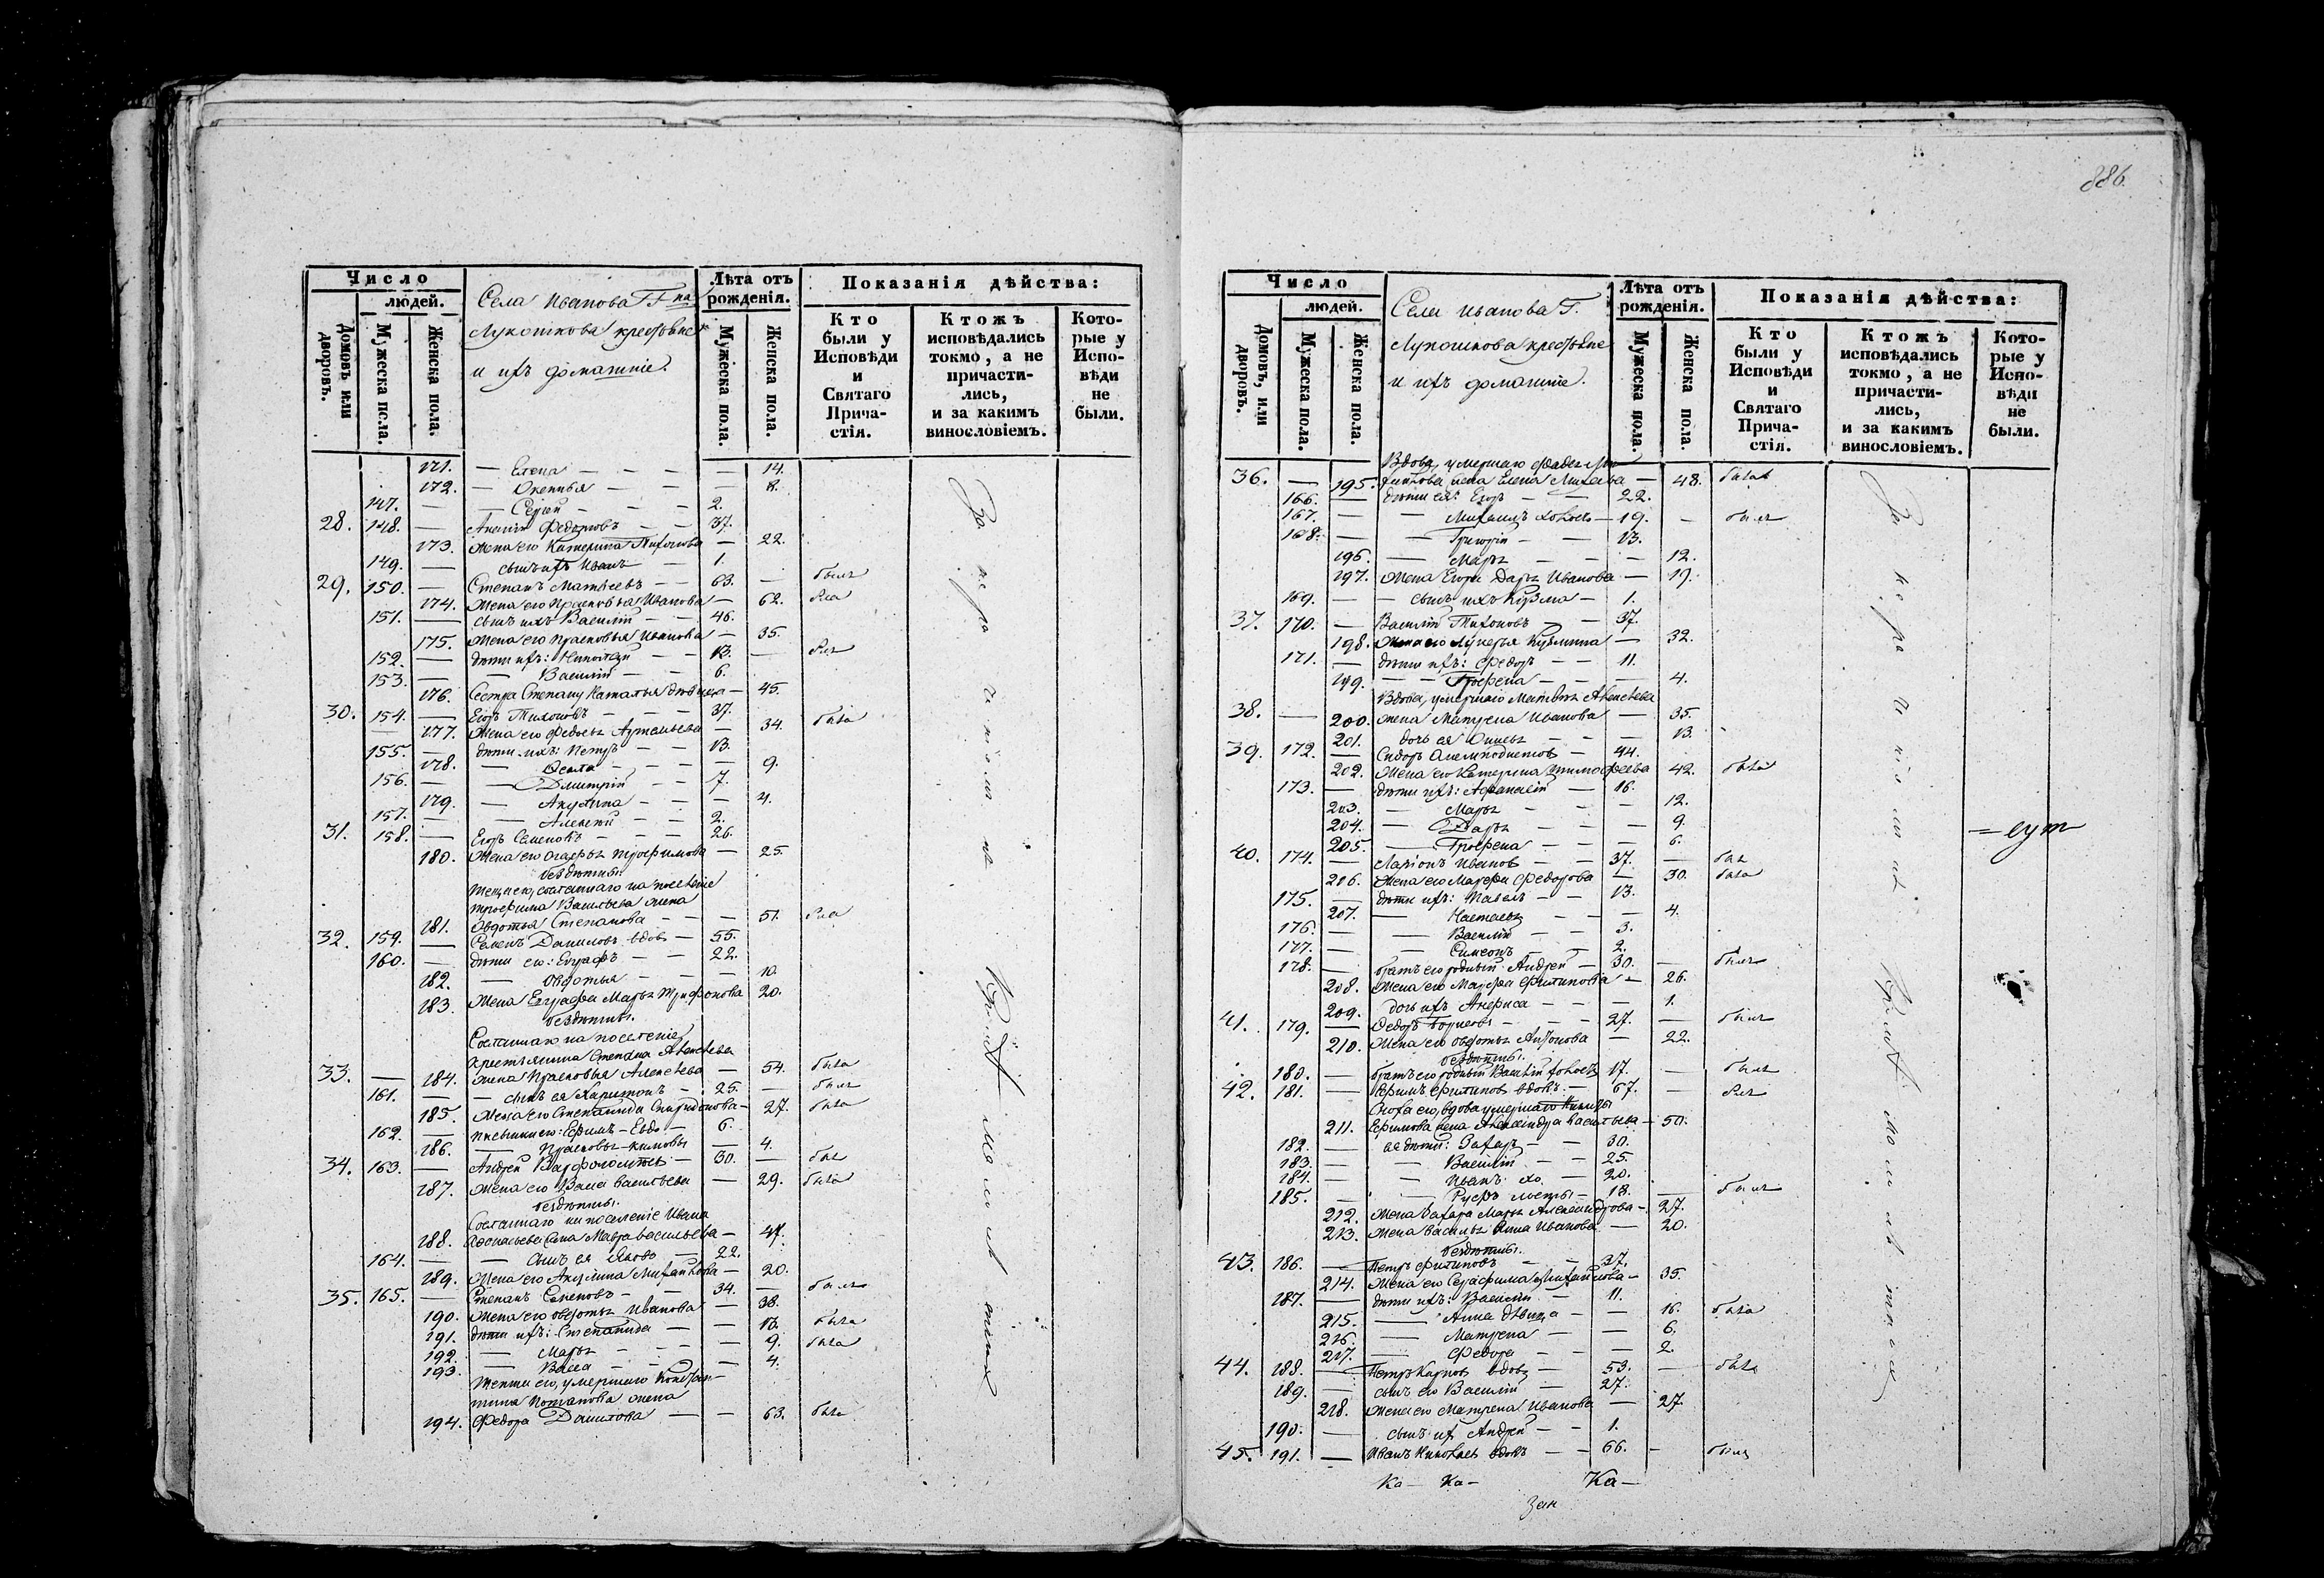 886.
Число
людей.
Домовъ или дворовъ.
Мужеска пола.
Женска пола.
Села Иванова Г-на
Лукошкова крестьяне
и ихъ домашніе.
Лѣта отъ рожденія.
Мужеска пола.
Женска пола.
Показанія дѣйства:
Кто были у Исповѣди и Святаго Прича-стія.
Ктожъ исповѣдались токмо, а не причасти-лись, и за какимъ винословіемъ.
Кото-рые у Испо-вѣди не были.
171. — Елена — — — — 14.
172. — Аксинья — — — 8.
147. — — Сергій — — — 2.
28. 148. — Ананій Федоровъ — — 37.
173. Жена его Катерина Тихонова — 22.
149. — сынъ ихъ Иванъ — 1.
29. 150. — Степанъ Матвѣевъ — — 63. — былъ
174. Жена его Прасковья Иванова — 62. была
151. — сынъ ихъ Василій — — 46.
175. Жена его Прасковья Иванова — 35.
152. — дѣти ихъ: Николай — — 13. — былъ
153. — — Василій — — 6.
176. Сестра Степану Наталья дѣвица — 45.
30. 154. — Егоръ Тихоновъ — — — 37.
177. Жена его Федосья Артемьева — 34. была
155. — дѣти ихъ: Петръ — — 13.
178. — Фекла — — — — 9.
156. — — Дмитрій — — 7.
179. — Акулина — — — 4.
157. — — Алексѣй — — 2.
31. 158. — Егоръ Семеновъ — — — 26.
180. Жена его Агафья Трофимова — 25.
бездѣтны.
Теща его, сосланнаго на поселеніе
Трофима Васильева жена
181. Авдотья Степанова — — — 51. была
32. 159. — Семенъ Даниловъ вдовъ — 55.
160. — дѣти его: Евграфъ — — 22.
182. — Авдотья — — — 10.
183. Жена Евграфа Марья Трифонова 20.
бездѣтны.
Сосланнаго на поселеніе
крестьянина Степана Алексѣева
33. — 184. жена Прасковья Алексѣева — 54. была
161. — — сынъ ея Харитонъ — 25. — былъ
185. Жена его Степанида Спиридонова — 27. была
162. — Пасынки его: Ефимъ — Евдо — 6.
186. — Прасковья — кимовы — 4.
34. 163. — Андрей Варфоломѣевъ — 30. — былъ
187. Жена его Васса Васильева — 29. была
бездѣтны.
Сосланнаго на поселеніе Ивана
188. Афонасьева жена Мавра Васильева — 47.
164. — — сынъ ея Яковъ — 22.
189. Жена его Акулина Михайлова — 20.
35. 165. — Степанъ Семеновъ — — 34. — былъ
190. Жена его Авдотья Иванова — 38.
191. дѣти ихъ: Степанида — — 13. была
192. — Марья — — — — 9. была
193. — Васса — — — — 4.
Тетка его, умершаго Констан-
тина Потапова жена
194. Федора Данилова — — 63. была
За нераченіемъ
Число
людей.
Домовъ, или дворовъ.
Мужеска пола.
Женска пола.
Села Иванова Г.
Лукошкова крестьяне
и ихъ домашніе.
Лѣта отъ рожденія.
Мужеска пола.
Женска пола.
Показанія дѣйства:
Кто были у Исповѣди и Святаго Прича-стія.
Ктожъ исповѣдались токмо, а не причасти-лись, и за какимъ винословіемъ.
Кото-рые у Испо-вѣди не были.
Вдова, умершаго
36. — 195. жена Елена Михеева — 48. была
166. — дѣти ея: Егоръ — — 22.
167. — — Михаилъ холостъ — 19. — былъ
168. — — Григорій — — 13.
196. — Марья — — — 12.
197. Жена Егора Дарья Иванова — 19.
169. — — сынъ ихъ Кузма — 1.
37. 170. — Василій Тихоновъ — — 37.
198. Жена его Лукерья Кузьмина — 32.
171. — дѣти ихъ: Федоръ — — 11.
199. — — Трофена — — — 4.
Вдова, умершаго Матвѣя Алексѣева
38. — 200. жена Матрена Иванова — 35.
201. дочь ея Анисья — — — 13.
39. 172. — Сидоръ Олимподистовъ — 44.
202. Жена его Катерина Тимофеева 42. была
173. — дѣти ихъ: Афанасій — 16.
203. — Марья — — — 12.
204. — Дарья — — — 9.
205. — Трофена — — — 6.
40. 174. — Ларіонъ Ивановъ — — 37. — былъ
206. Жена его Марфа Федорова — 30. была
175. — дѣти ихъ: Павелъ — — 13.
207. — Настасья — — — 4.
176. — — Василій — — 3.
177. — — Симеонъ — 2.
178. — братъ его родный Андрей — 30. — былъ
208. Жена его Марфа Филипова — 26.
209. дочь ихъ Анфиса — — — 1.
41. 179. — Федоръ Борисовъ — — — 27. — былъ
210. Жена его Авдотья Антонова — 22.
бездѣтны.
180. — братъ его родный Василій холостъ 17. — былъ
42. 181. — Ефимъ Филиповъ вдовъ — 67. — былъ
Сноха его, вдова умершаго Никиты
211. Ефимова жена Александра Васильева — 50.
182. — ея дѣти: Захаръ — — 30.
183. — — Василій — — 25.
184. — — Иванъ хо. — — 20.
185. — — Руфъ лосты — 18. — былъ
212. Жена Захара Марья Александрова — 27.
213. Жена Василья Анна Иванова — 20.
бездѣтны.
43. 186. — Петръ Филиповъ — — 37.
214. Жена его Серафима Михайлова — 35.
187. — дѣти ихъ: Василій — — 11.
215. — Анна дѣвица — — 16. была
216. — Матрена — — 6.
217. — Федора — — — 2.
44. 188. — Петръ Карповъ вдовъ — 53. — былъ
189. — сынъ его Василій — 27.
218. Жена его Матрена Иванова — 27.
190. — сынъ их Андрей — — 1.
45. 191. — Иванъ Николаевъ вдовъ — — 66. — былъ
За нераченіемъ
Ка — Ка — Ка —